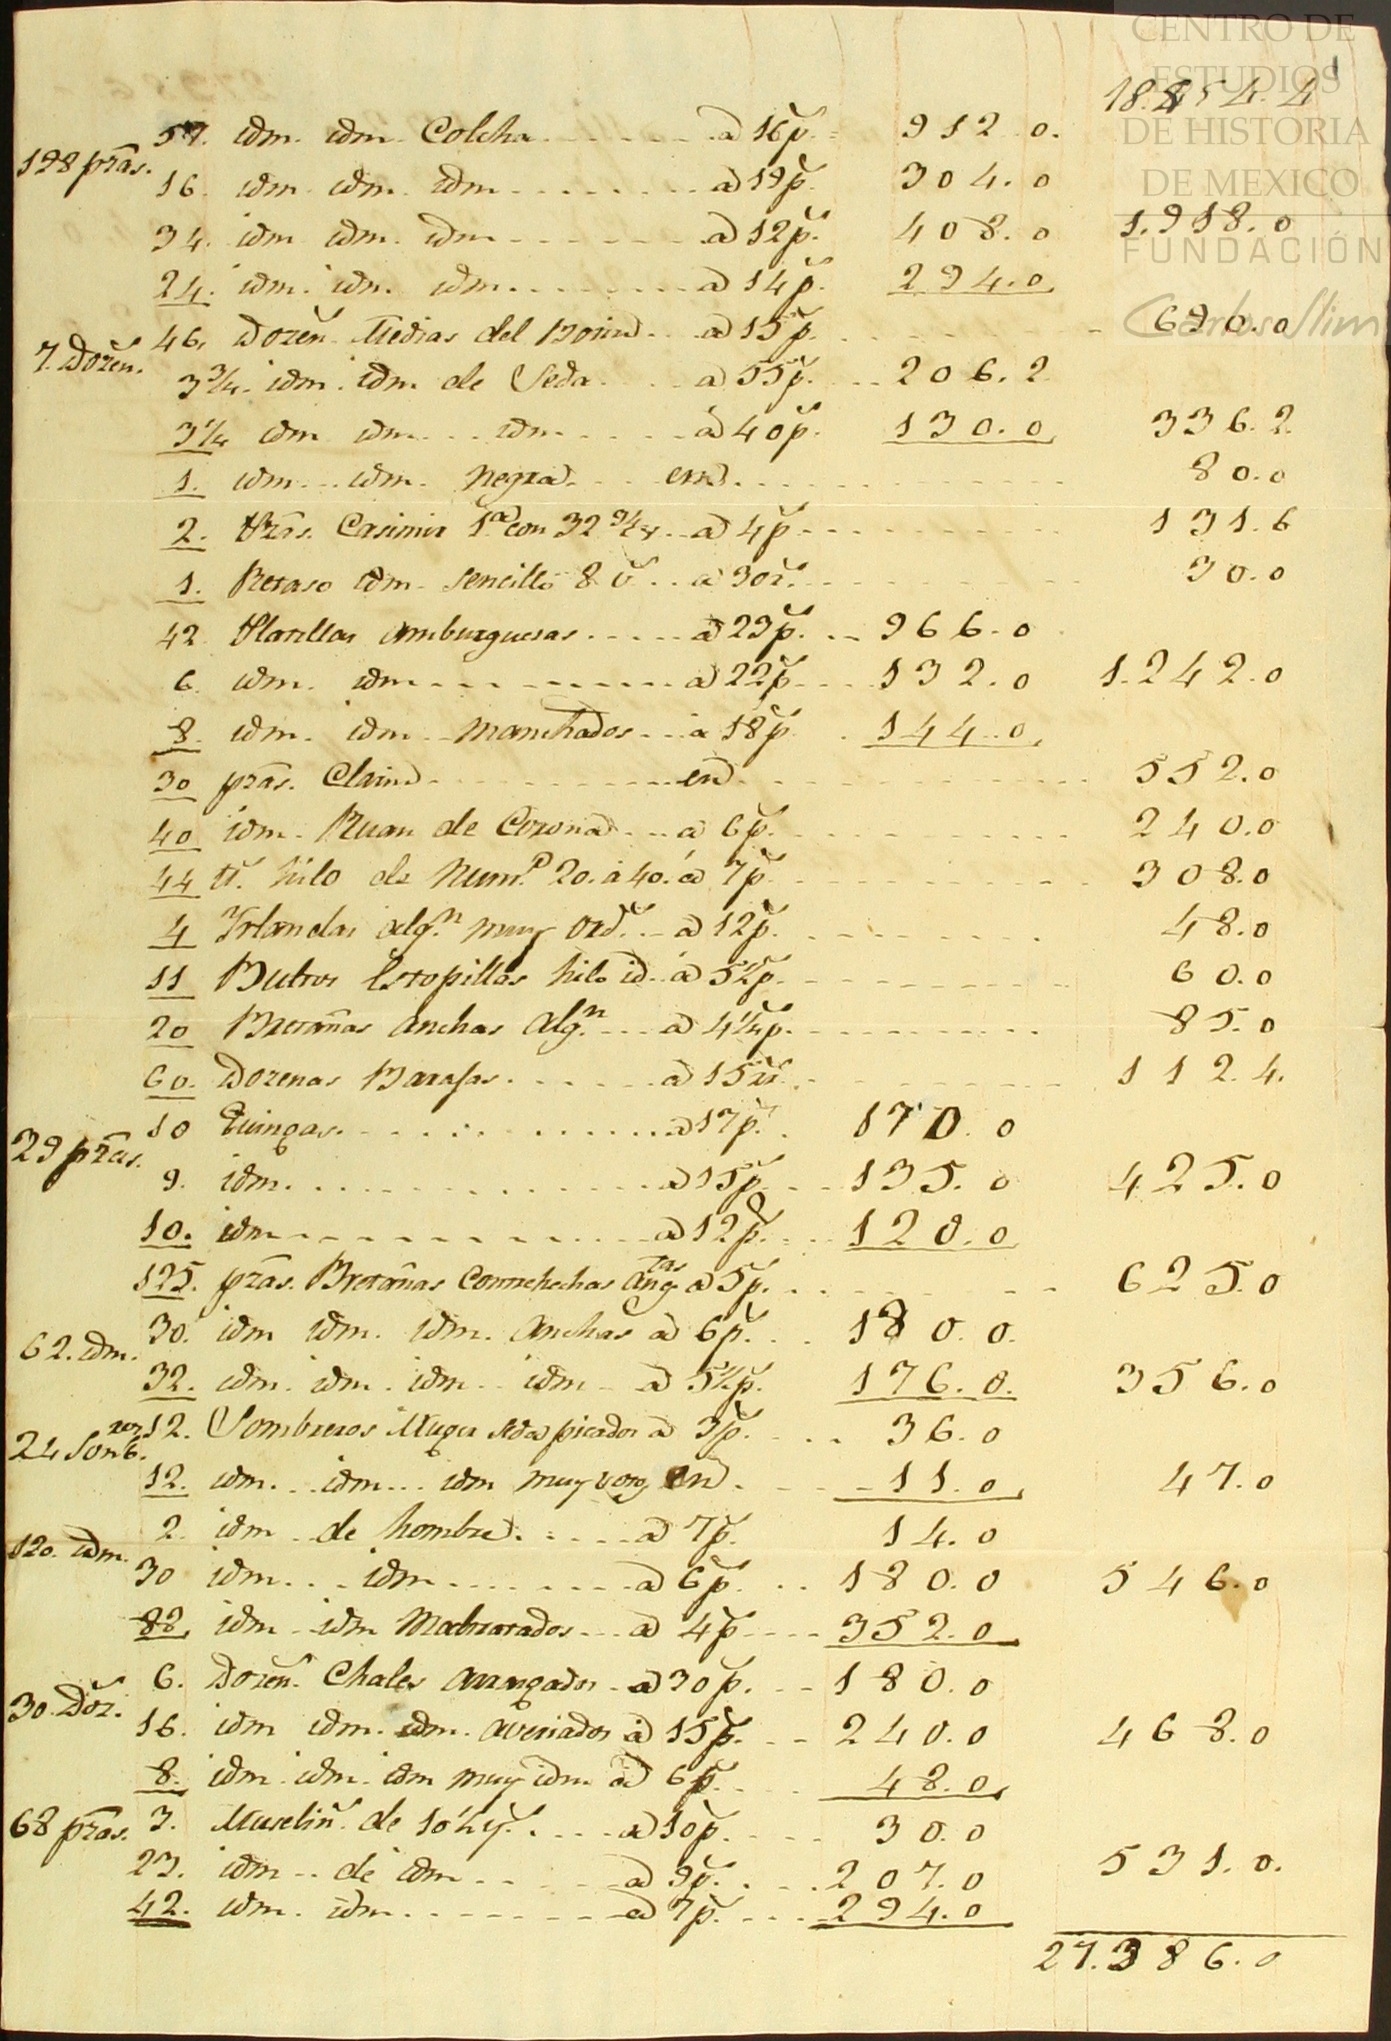 CENTRO DE
ESTUDIOS
DE HISTORIA
DE MEXICO
FUNDACIÓN
Carlos Slim
18.554.4
57. idm. idm. Colcha a 16 p.s 912.0.
128 pzãs.
16. idm. idm. idm a 19 p.s 304.0
34. idm idm. idm a 12 p.s 408.0 1.918.0
24. idm. idm. idm a 14 p.s 294.0
46. Dozen.s Medias del a 15 p.s 690.0
7. Dozen.s
3 3/4. idm. idm de Seda a 55 p.s 206.2
3 1/4 idm idm idm a 40 p.s 130.0 336.2.
1. idm idm. negra en 80.0
2. Pzãs. Casimir 1.a con 32 3/4 v.s a 4 p.s 131.6
1. Retaso idm. sencillo 8 v.s a 30 r.s 30.0
42 Platillas Amburguesas a 23 p.s 966.0
6. idm. idm a 22 p.s 132.0 1.242.0
8. idm. idm manchados a 18 p.s 144.0
30 pzãs. Clarin en 552.0
40 idm. Ruan de Corona a 6 p.s 240.0
44 tt.s hilo de Num.o 20. a 40. a 7 p.s 308.0
4 Yrlandas alg.n muy ord.s a 12 p.s 48.0
11 Bultos Estopillas hilo id a 5 1/2 p.s 60.0
20 Bretañas anchas alg.n a 4 1/4 p.s 85.0
60. Dozenas Barajas a 15 r.s 112.4.
10 Guingas a 17 p.s 170.0
29 pzãs.
9. idm. a 15 p.s 135.0 425.0
10. idm a 12 p.s 120.0
125. pzãs. Bretañas Contrahechas ang.tas a 5 p.s 625.0
30. idm idm. idm. Anchas a 6 p.s 180.0.
62. idm.
32. idm. idm. idm idm a 5 1/2 p.s 176.0. 356.0
12. Sombreros Muger seda picados a 3 p.s 36.0
24 Somb.ros
12. idm. idm idm muy en 11.0 47.0
2. idm de hombre a 7 p.s 14.0
120. idm.
30 idm idm a 6 p.s 180.0 546.0
88. idm idm Maltratados a 4 p.s 352.0
6. Dozen.s Chales arrugados a 30 p.s 180.0
30. Doz.s
16. idm idm. idm. averiados a 15 p.s 240.0 468.0
8. idm. idm. idm muy idm a 6 p.s 48.0
68 pzãs.
3. Muselin.s de 10 1/2 y.s a 10 p.s 30.0
23. idm de idm a 9 p.s 207.0 531.0.
42. idm. idm a 7 p.s 294.0
27.386.0